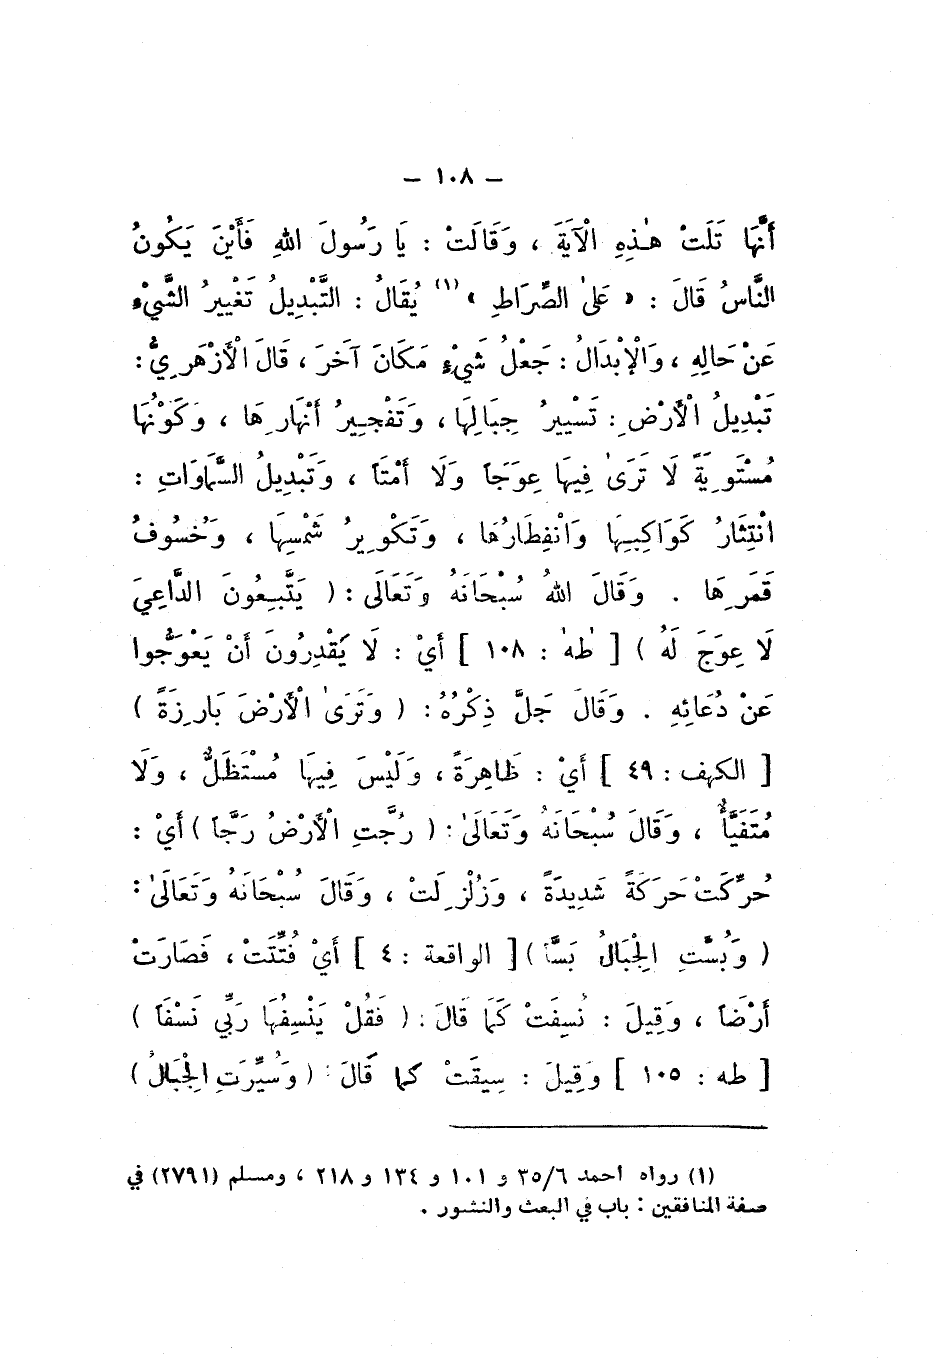 – ١٠٨ –
أَنَّهَا تَلَتْ هٰذِهِ الْآيَةَ ، وَقَالَتْ : يَا رَسُولَ اللهِ فَأَيْنَ يَكُونُ
النَّاسُ قَالَ : « عَلىٰ الصِّرَاطِ »(١) يُقَالُ : التَّبْدِيلُ تَغْيِيرُ الشَّيْءِ
عَنْ حَالِهِ ، وَالْإِبْدَالُ : جَعْلُ شَيْءٍ مَكَانَ آخَرَ ، قَالَ الْأَزْهَرِيُّ :
تَبْدِيلُ الْأَرْضِ : تَسْيِيرُ جِبَالِهَا ، وَتَفْجِيرُ أَنْهَارِهَا ، وَكَوْنُهَا
مُسْتَوِيَةً لَا تَرَىٰ فِيهَا عِوَجَاً وَلَا أَمْتَاً ، وَتَبْدِيلُ السَّمَاوَاتِ :
انْتِثَارُ كَوَاكِبِهَا وَانْفِطَارُهَا ، وَتَكْوِيرُ شَمْسِهَا ، وَخُسُوفُ
قَمَرِهَا . وَقَالَ اللهُ سُبْحَانَهُ وَتَعَالَى : ( يَتَّبِعُونَ الدَّاعِيَ
لَا عِوَجَ لَهُ ) [ طٰهٰ : ١٠٨ ] أَيْ : لَا يَقْدِرُونَ أَنْ يَعْوَجُّوا
عَنْ دُعَائِهِ . وَقَالَ جَلَّ ذِكْرُهُ : ( وَتَرَىٰ الْأَرْضَ بَارِزَةً )
[ الكهف : ٤٩ ] أَيْ : ظَاهِرَةً ، وَلَيْسَ فِيهَا مُسْتَظَلٌّ ، وَلَا
مُتَفَيَّأٌ ، وَقَالَ سُبْحَانَهُ وَتَعَالَىٰ : ( رُجَّتِ الْأَرْضُ رَجَّاً ) أَيْ :
حُرِّكَتْ حَرَكَةً شَدِيدَةً ، وَزُلْزِلَتْ ، وَقَالَ سُبْحَانَهُ وَتَعَالَىٰ :
( وَبُسَّتِ الْجِبَالُ بَسَّاً ) [ الواقعة : ٤ ] أَيْ فُتِّتَتْ ، فَصَارَتْ
أَرْضَاً ، وَقِيلَ : نُسِفَتْ كَمَا قَالَ : ( فَقُلْ يَنْسِفُهَا رَبِّي نَسْفَاً )
[ طه : ١٠٥ ] وَقِيلَ : سِيقَتْ كما قَالَ : ( وَسُيِّرَتِ الْجِبَالُ )
(١) رواه احمد ٣٥/٦ و ١٠١ و ١٣٤ و ٢١٨ ، ومسلم (٢٧٩١) في
صفة المنافقين : باب في البعث والنشور .